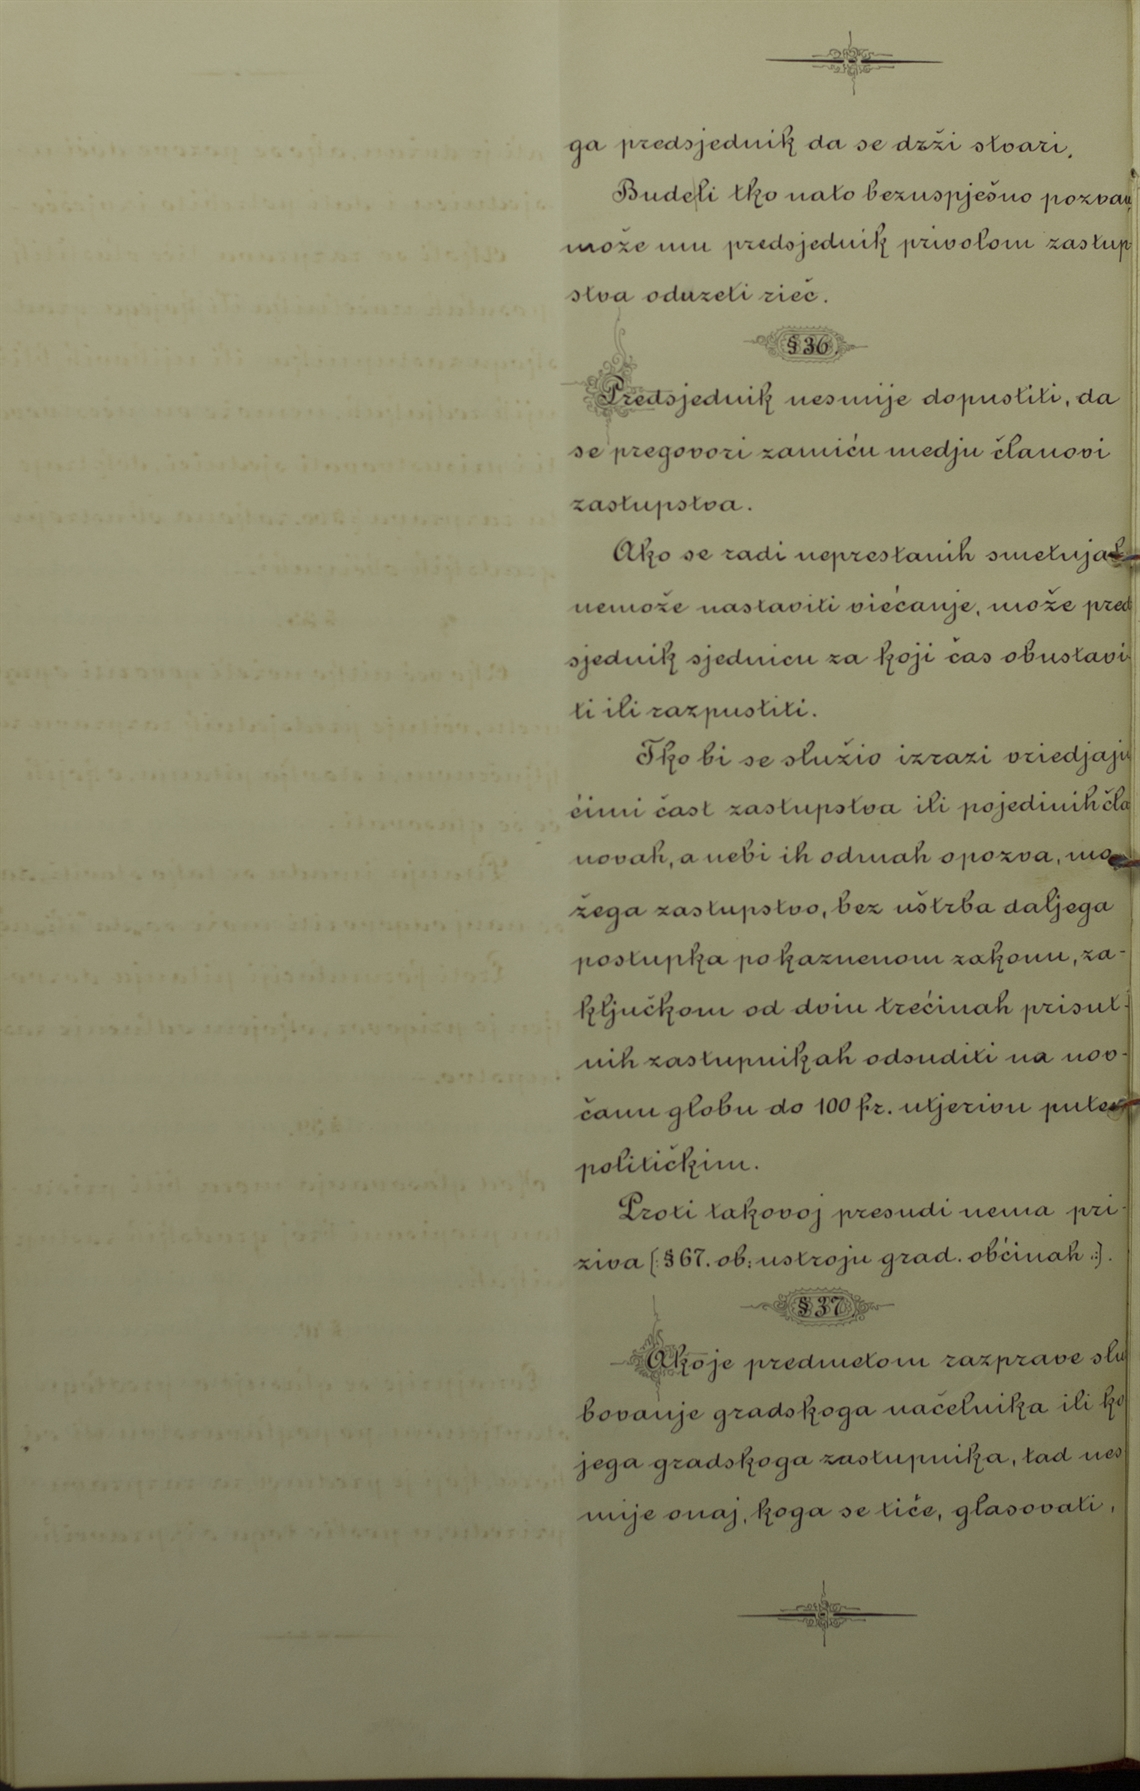 ga predsjednik da se drži stvari.
Budeli tko nato bezuspješno pozvan,
može mu predsjednik privolom zastup
stva oduzeti rieč.
§ 36.
Predsjednik nesmije dopustiti, da
se pregovori zamiću medju članovi
zastupstva.
Ako se radi neprestanih smetnjah
nemože nastaviti viećanje, može pred
sjednik sjednicu za koji čas obustavi
ti ili razpustiti.
Tko bi se služio izrazi vriedjaju
ćimi čast zastupstva ili pojedinih čla
novah, a nebi ih odmah opozva, mo
žega zastupstvo, bez uštrba daljega
postupka po kaznenom zakonu, za-
ključkom od dviu trećinah prisut-
nih zastupnikah odsuditi na nov-
čanu globu do 100 fr. utjerivu putem
političkim.
Proti takovoj presudi nema pri-
ziva (: § 67. ob: ustroju grad. obćinah :).
§ 37.
Ako je predmetom razprave slu
bovanje gradskoga načelnika ili ko
jega gradskoga zastupnika, tad nes
mije onaj, koga se tiče, glasovati,